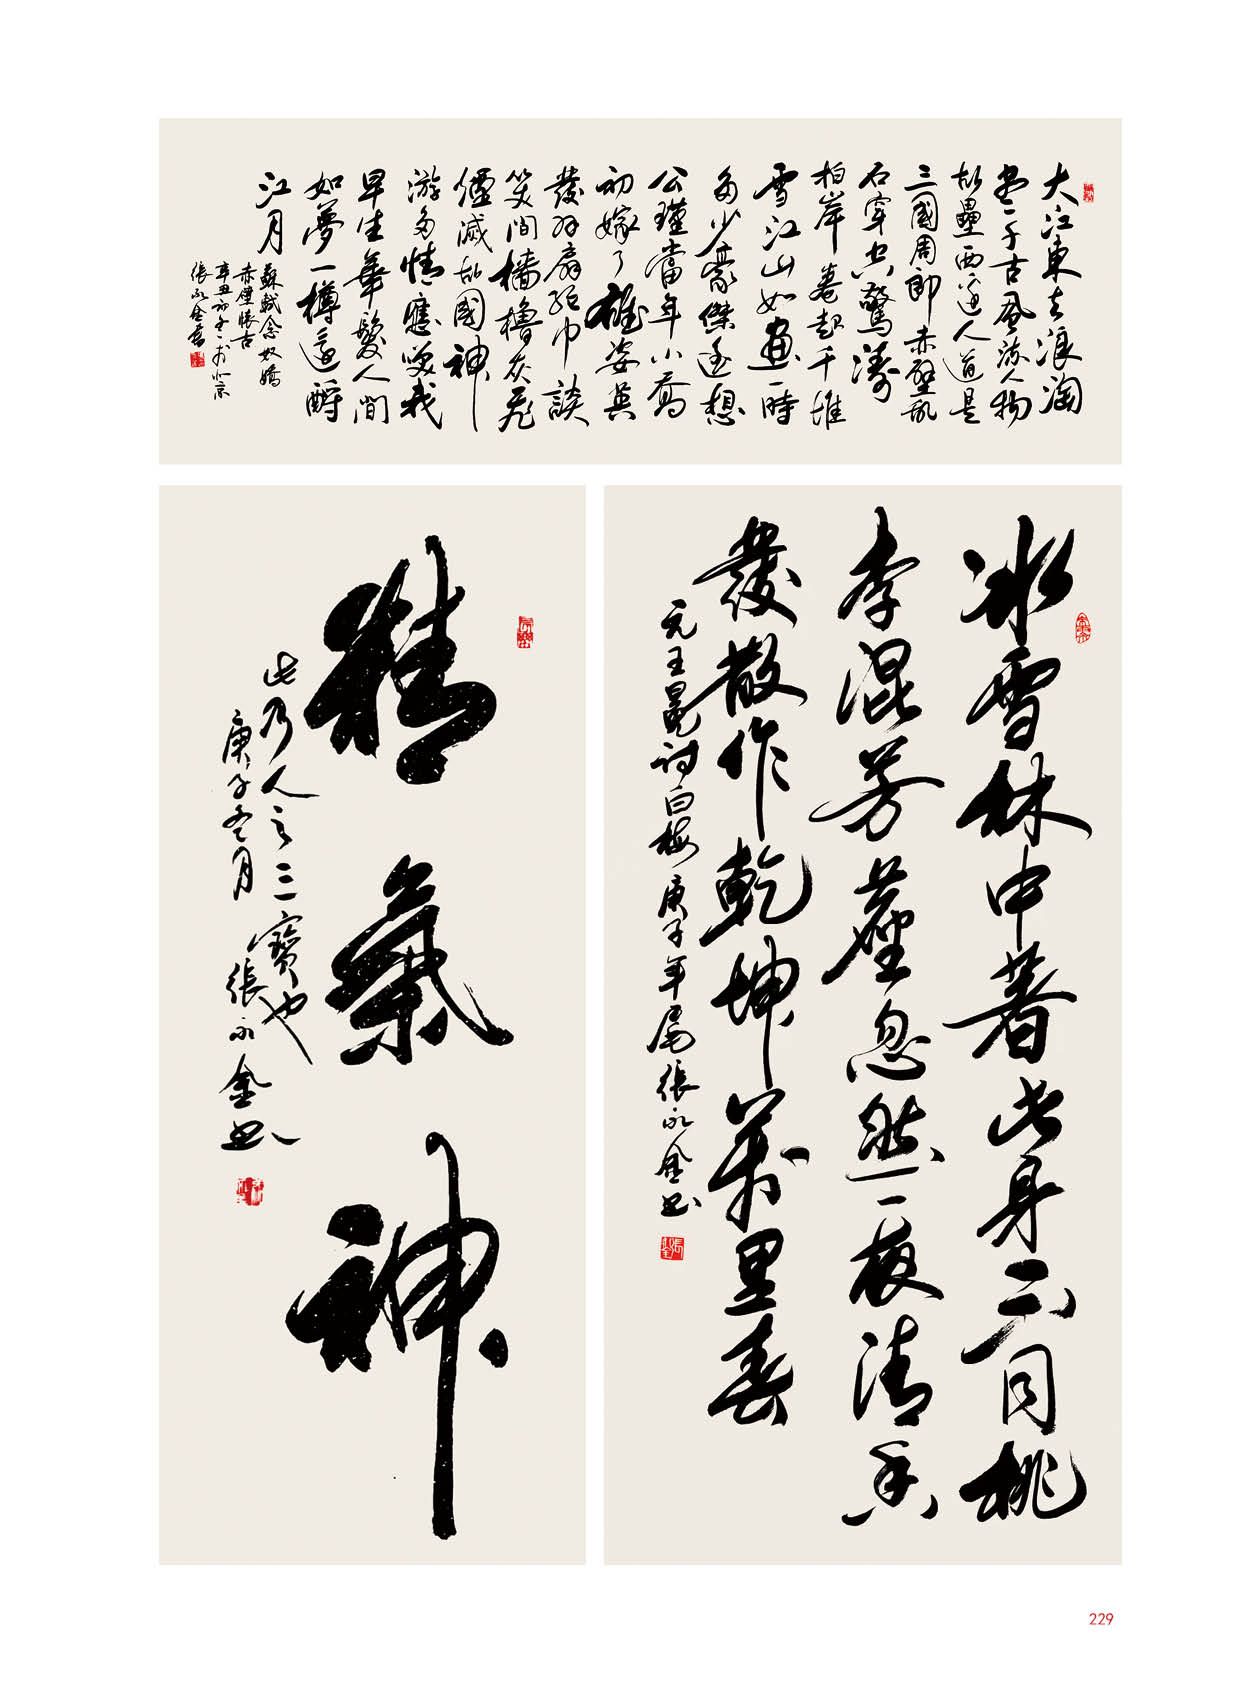 大江東去浪淘
盡千古風流人物
故壘西邊人道是
三國周郎赤壁亂
石穿空驚濤
拍岸卷起千堆
雪江山如畫一時
多少豪傑遙想
公瑾當年小喬
初嫁了雄姿英
發羽扇綸巾談
笑間檣櫓灰飛
煙滅故國神
游多情應笑我
早生華髮人間
如夢一樽還酹
江月
蘇軾念奴嬌
赤壁懷古
辛丑初冬於北京
張永金書
冰雪林中著此身不同桃
李混芳塵忽然一夜清香
發散作乾坤萬里春
元王冕詩白梅庚子年尾張永金書
精氣神
此乃人之三寶也
庚子冬月張永金書
229